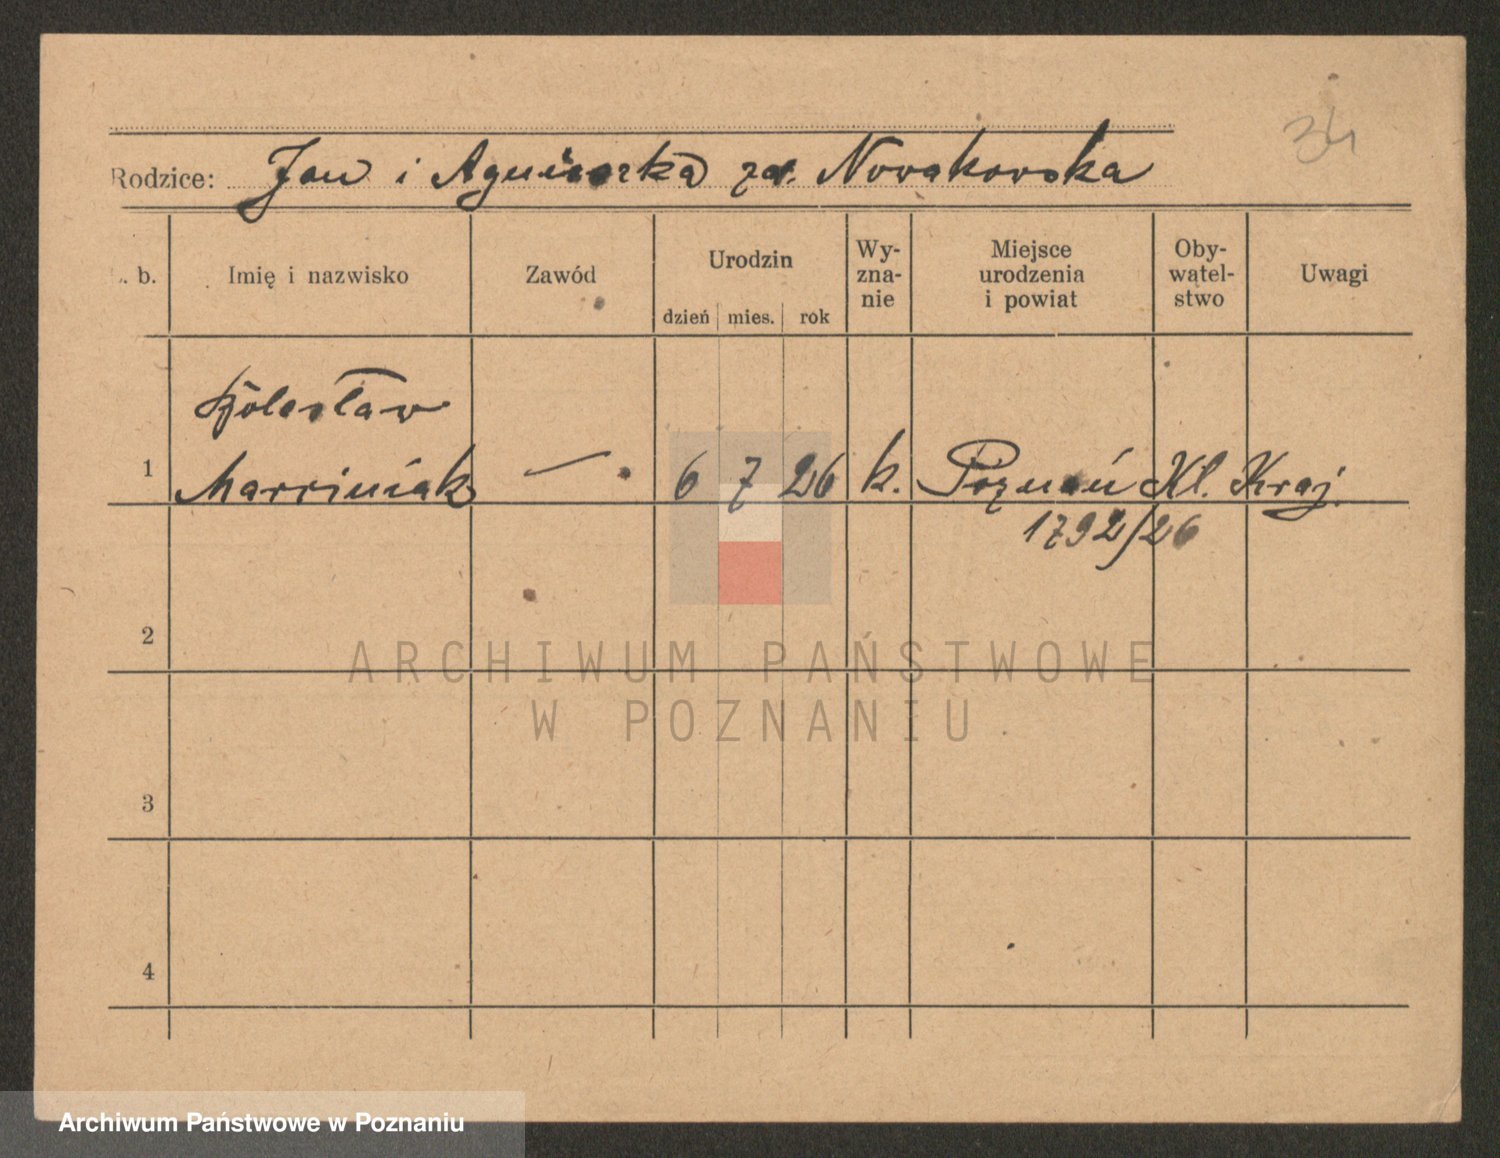 34
Rodzice: Jan i Agnieszka zd. Nowakowska
L. b. Imię i nazwisko Zawód Urodzin dzień mies. rok Wy-zna-nie Miejsce urodzenia i powiat Oby-watel-stwo Uwagi
Bolesław
1 Marciniak — 6 7 26 k. Poznań Kl. Kraj.
1792/26
2
ARCHIWUM PAŃSTWOWE
W POZNANIU
3
4
Archiwum Państwowe w Poznaniu